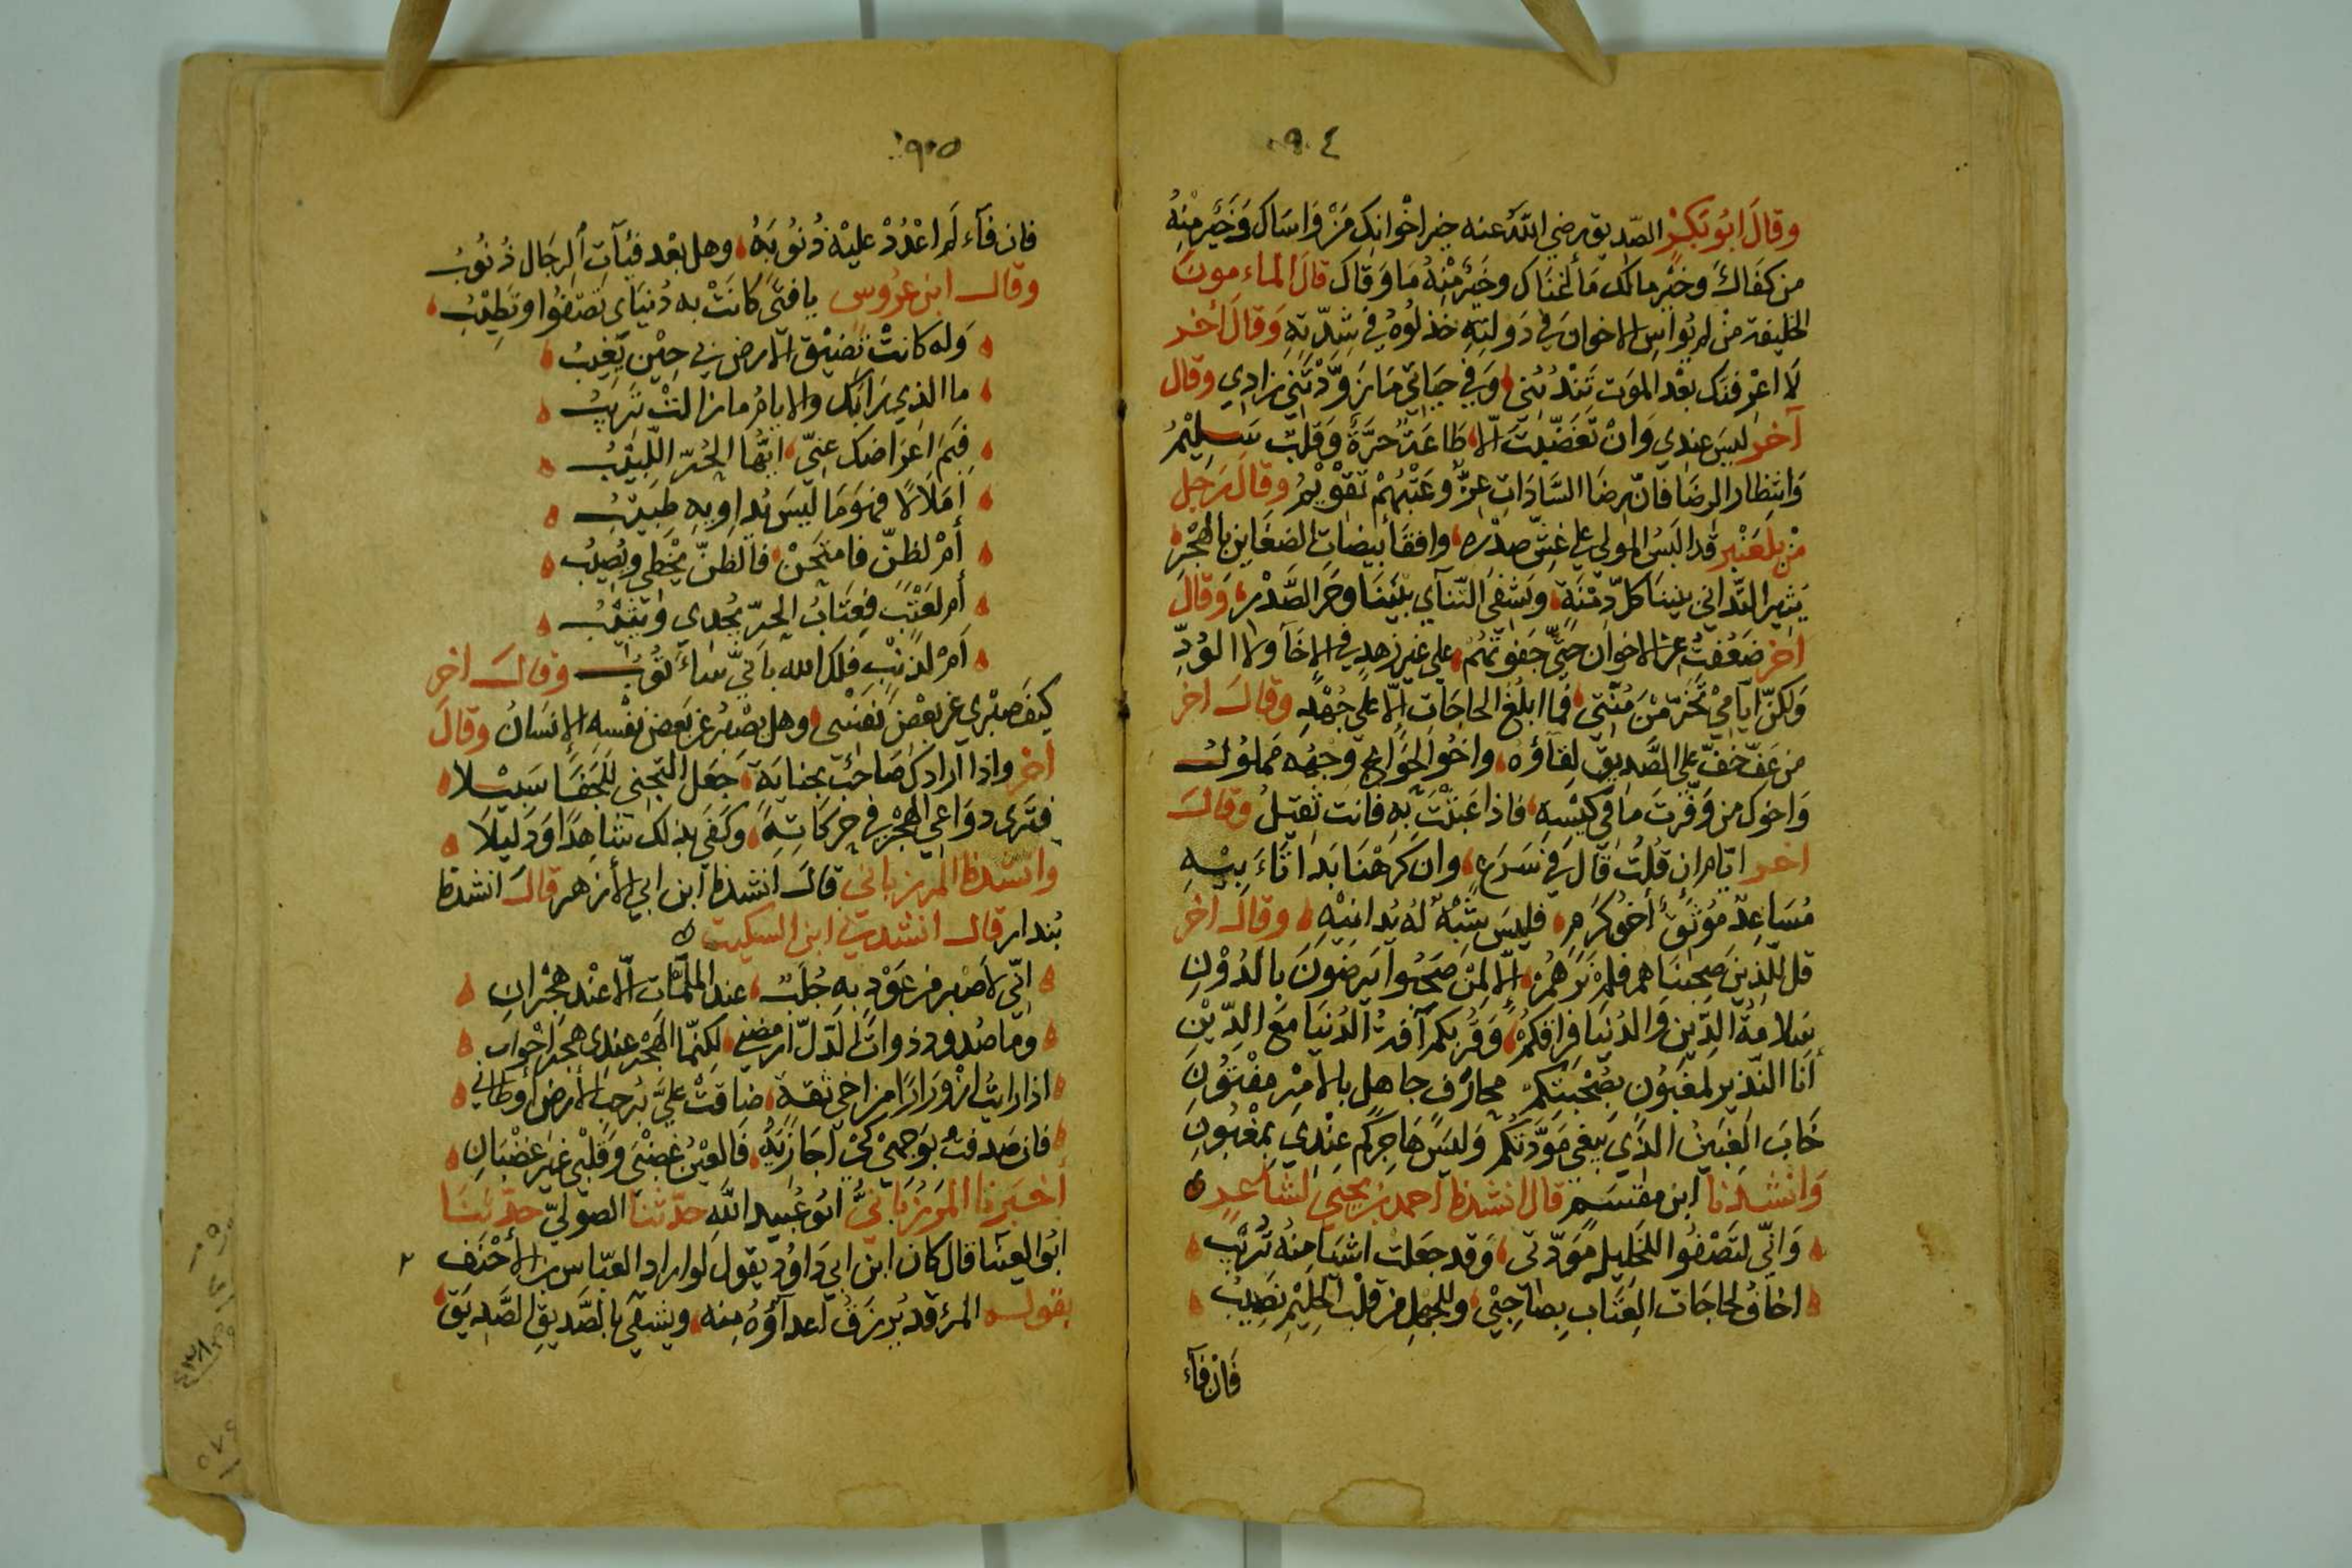 ٩٠٤
وقال ابو بكر الصديق رضي الله عنه خير اخوانك من واساك وخير منه
من كفاك وخير مالك ما اغناك وخير منه ما وقاك قال الماءمون
الخليفة من لم يواس الاخوان في دولته خذلوه في شدته وقال أخر
لا اعرفنك بعد الموت تندبني وفي حياتي ما زودتني زادي وقال
آخر ليس عندي وان تغضبت الا طاعة حرة وقلب سليم
وانتظار الرضا فان رضا السادات عز وعتبهم تقويم وقال رجل
من بلعنبر قد البس المولى على غش صدره وافقأ بيضات الضغاين بالهجر
يثير التداني بيننا كل دمنة ويشفي التنآي بيننا وحر الصدر وقال
اخر ضعفت عن الاخوان حتى جفوتهم على غير زهد في الاخآ ولا الود
ولكن ايامي تخر من منتي فما ابلغ الحاجات الا على جهد وقال اخر
من عف خف على الصديق لقآؤه واخو الحوايج وجهه مملول
واخوك من وفرت ما في كيسه فاذا عبثت به فانت ثقيل وقال
اخر ان قلت قال في سرع وان كرهنا بدا
مساعد مونق أخو كرم فليس شبه له يدانيه وقال اخر
قل للذين صحبناهم فلم نرهم الا لمن صحبوا يرضون بالدون
سلامة الدين والدنيا فراقكم وقربكم آفة الدنيا مع الدين
أنا النذير لمغبون بصحبتكم محارف جاهل بالامر مفتون
خاب الغبين الذي يبغي مودتكم وليس هاجركم عندي بمغبون
وانشدنا ابن مقسم قال انشدنا احمد بن يحيى لشاعر
واني لتصفوا للخليل مودتي وقد جعلت اشيا منه تريب
اخاف لحاجات العتاب بصاحبي وللجهل من قلب الحليم نصيب
فان فآء
٩٠٥
فان فآء لم اعدد عليه ذنوبه وهل بعد فيآت الرجال ذنوب
وقال ابن عروس يا فتى كانت به دنياي تصفوا وتطيب
وله كانت تضيق الارض بي حين يغيب
ما الذي رابك والايام ما زالت تريب
فيم اعراضك عني ايها الحر اللبيب
أملالا فهو ما ليس يداويه طبيب
أم لظن فامتحن فالظن يخطي ويصيب
أم لعتب فعتاب الحر يجدي ويثيب
أم لذنب فلك الله باني سأتوب وقال اخر
كيف صبري عن بعض نفسي وهل يصبر عن بعض نفسه الانسان وقال
اخر واذا اراد صاحب بجناية جعل التجني للجفا سبيلا
فترى دواعي الهجر في حركاته وكفى بذلك شاهدا ودليلا
وانشدنا المرزباني قال انشدنا ابن ابي الأزهر قال انشدنا
بندار قال انشدني ابن السكيت
اني لاصبر من عود به جلب عند الملمات الا عند هجران
وما صدود ذوات الدل ارمضني لكنما الهجر عندي هجر اخوان
اذا رايت ازورارا من اخي ثقة ضاقت علي برحب الارض أوطاني
فان صدفت بوجهي كي اجازيه فالعين غضبى وقلبي غير غضبان
أخبرنا المرزباني ابو عبيد الله حدثنا الصولي حدثنا
ابو العينا قال كان ابن ابي داود يقول لو اراد العباس بن الأحنف
بقوله المرء قد يرزق اعدآؤه منه ويشقى بالصديق الصديق